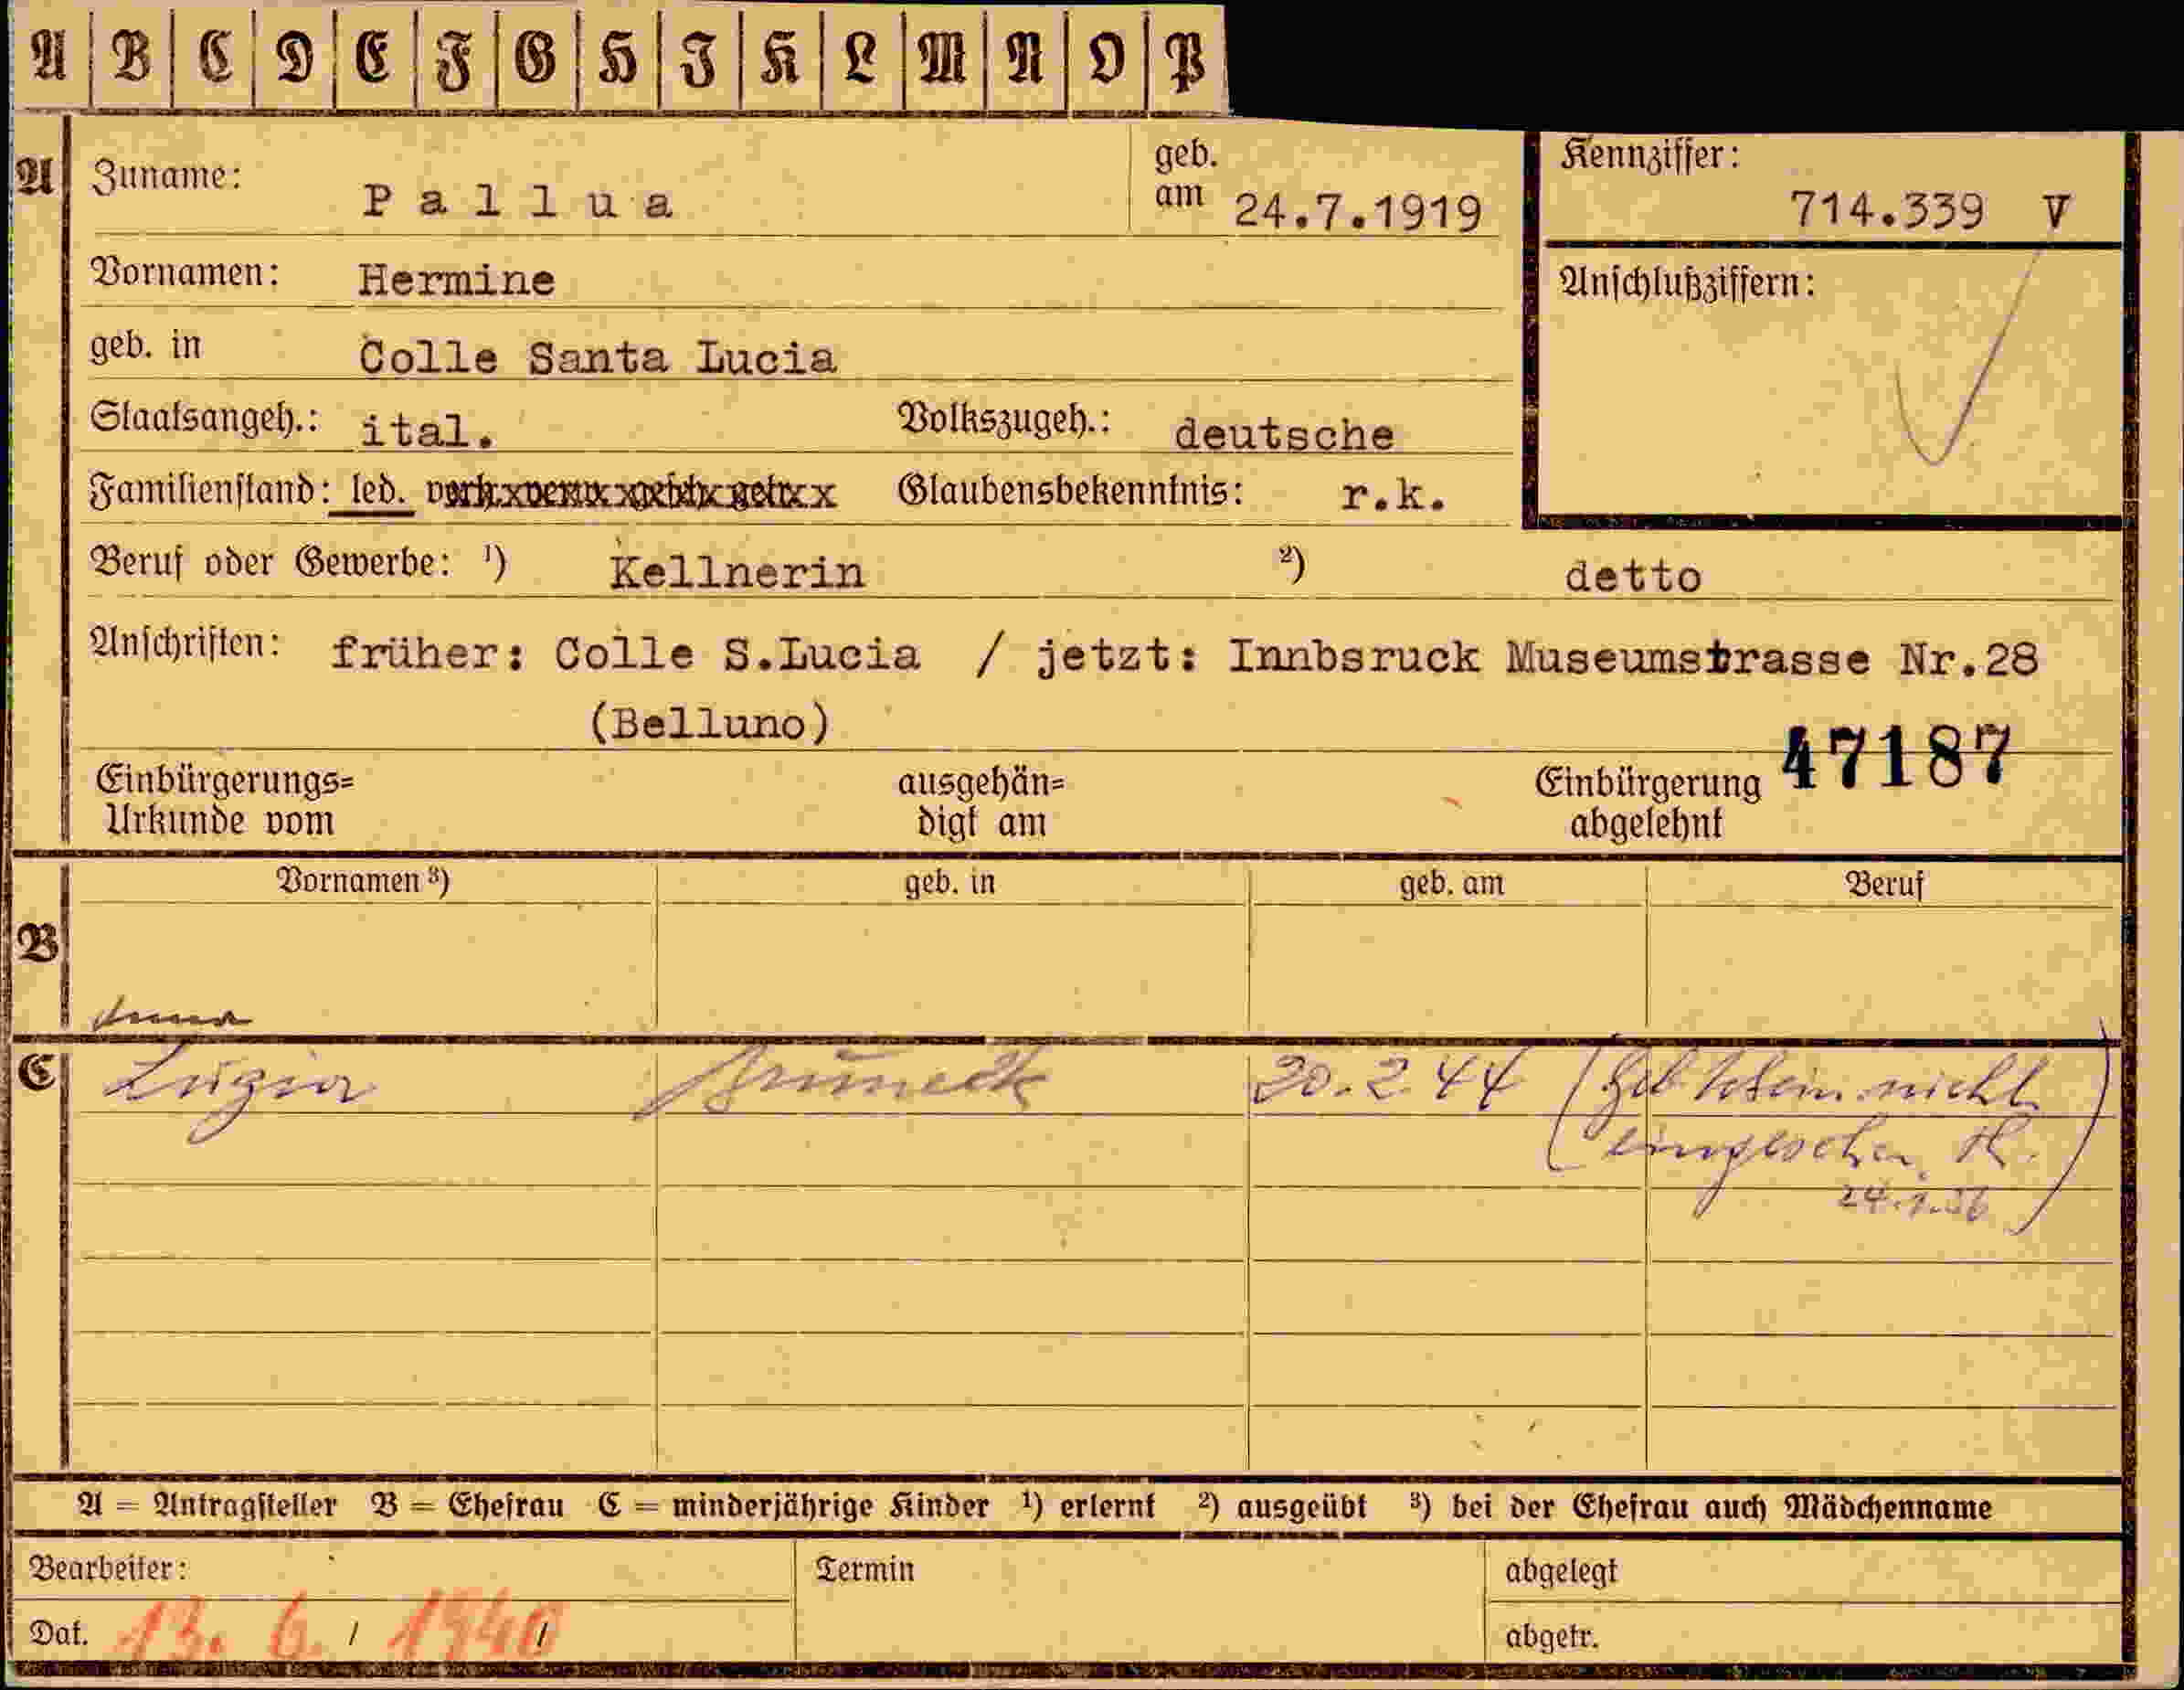 A B C D E F G H J K L M N O P
A Zuname: Pallua geb. am 24.7.1919 Kennziffer: 714.339 V
Vornamen: Hermine Anschlußziffern:
geb. in Colle Santa Lucia
Staatsangeh.: ital. Volkszugeh.: deutsche
Familienstand: led. verh. verw. gesch. getr. Glaubensbekenntnis: r.k.
Beruf oder Gewerbe: ¹) Kellnerin ²) detto
Anschriften: früher: Colle S.Lucia / jetzt: Innbsruck Museumstrasse Nr.28
(Belluno)
47187
Einbürgerungs= ausgehän= Einbürgerung
Urkunde vom digt am abgelehnt
Vornamen ³) geb. in geb. am Beruf
B
Anna
C Luzia Bruneck 20.2.44 (Geb Schein nicht
eingesehen.
A = Antragsteller B = Ehefrau C = minderjährige Kinder ¹) erlernt ²) ausgeübt ³) bei der Ehefrau auch Mädchenname
Bearbeiter: Termin abgelegt
Dat. 13. 6. / 1940 / abgetr.